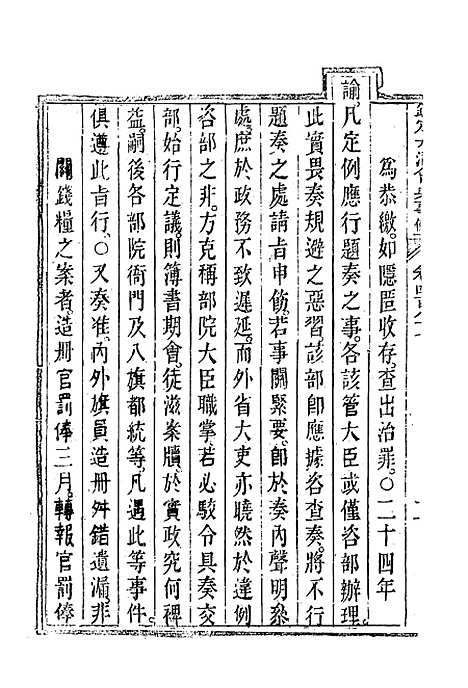 為恭繳。如隱匿收存。查出治罪。○二十四年
諭。凡定例應行題奏之事。各該管大臣或僅咨部辦理。
此實畏奏規避之惡習。該部即應據咨查奏。將不行
題奏之處請旨申飭。若事關緊要。即於奏內聲明叅
處。庶於政務不致遲延。而外省大吏亦曉然於違例
咨部之非。方克稱部院大臣職掌。若必駁令具奏交
部。始行定議。則簿書期會。徒滋案牘。於實政究何裨
益。嗣後各部院衙門及八旗都統等。凡遇此等事件。
俱遵此旨行。○又奏准。內外旗員造册舛錯遺漏。非
關錢糧之案者。造册官罰俸三月。轉報官罰俸